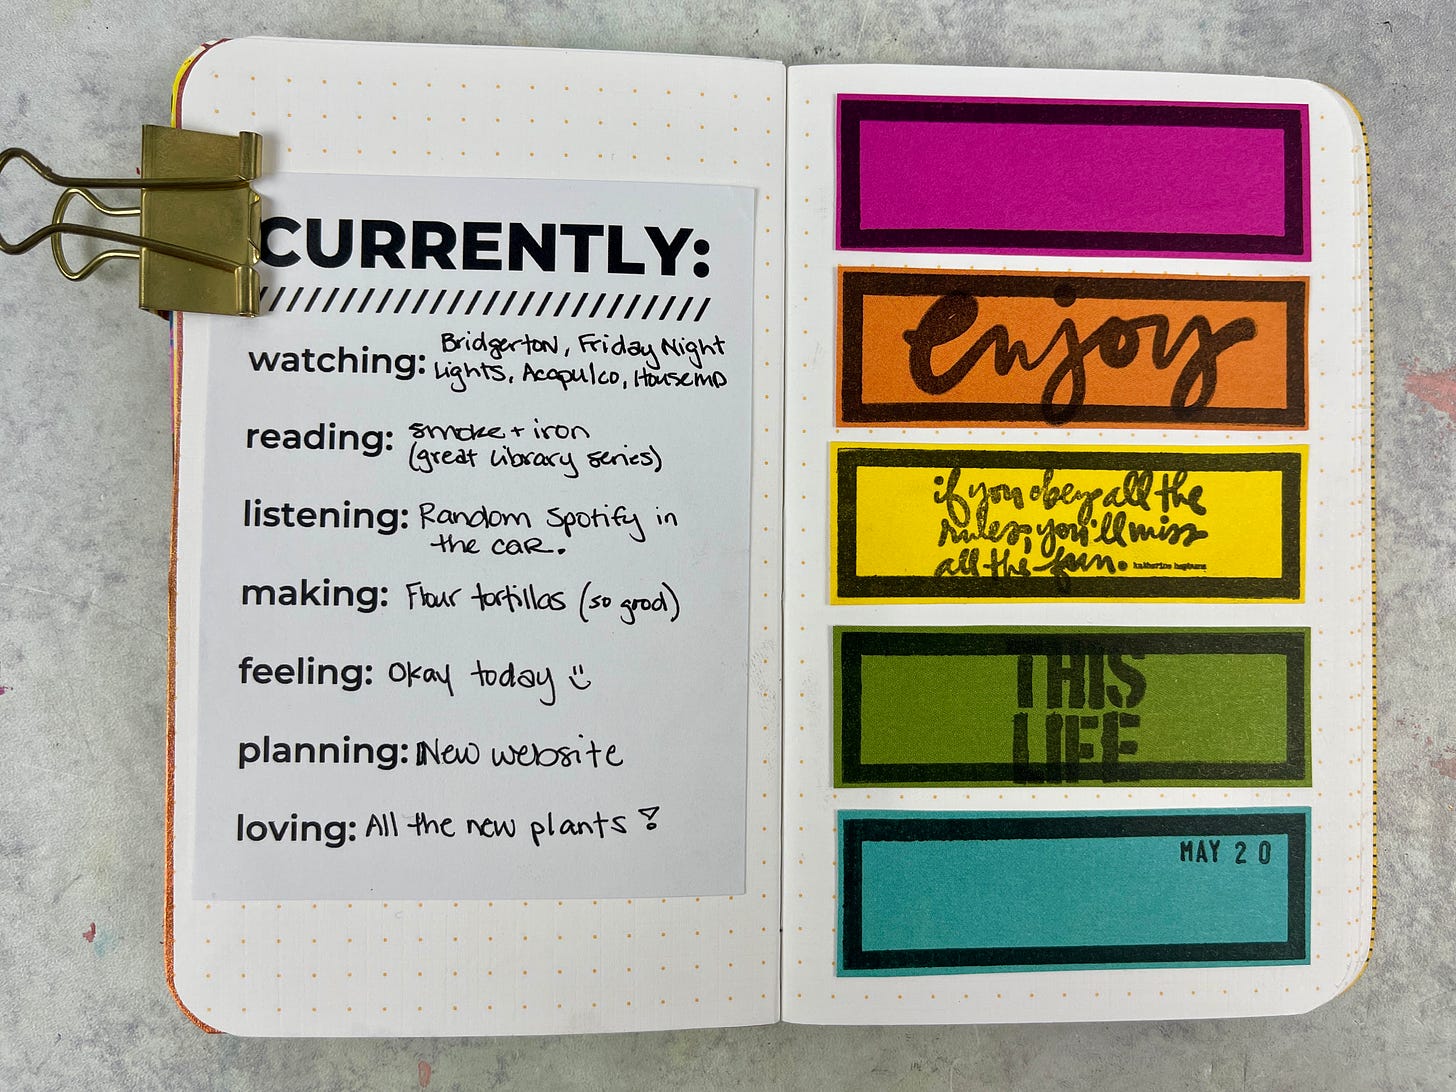 CURRENTLY:
watching: Bridgerton, Friday Night
Lights, Acapulco, House MD
reading: smoke + iron
(great Library series)
listening: Random Spotify in
the car.
making: Flour tortillas (so good)
feeling: Okay today
planning: New website
loving: All the new plants!
enjoy
if you obey all the
rules, you'll miss
all the fun. katharine hepburn
THIS
LIFE
MAY 20